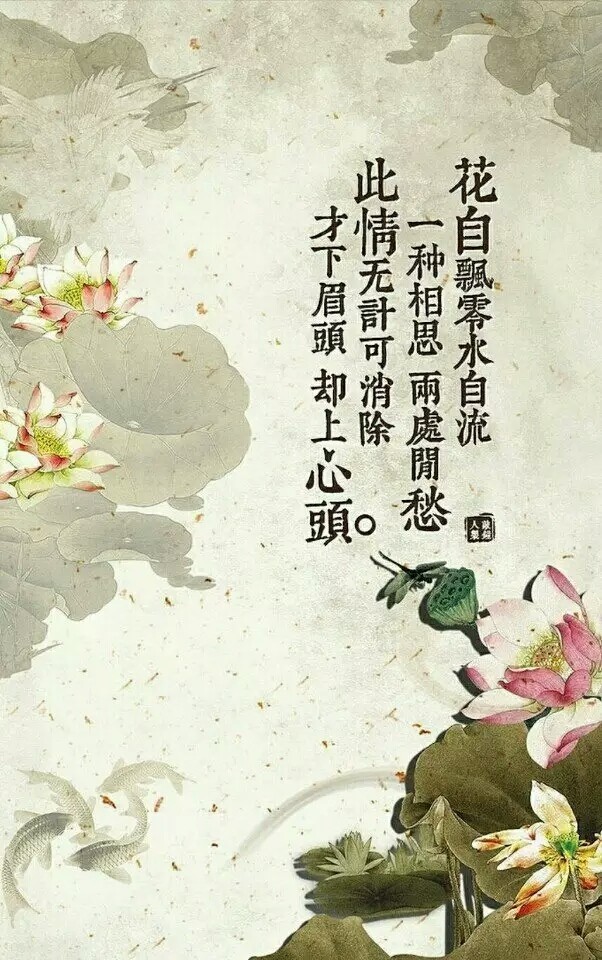 花自飄零水自流
一种相思 兩處閒愁
此情无計可消除
才下眉頭 却上心頭。